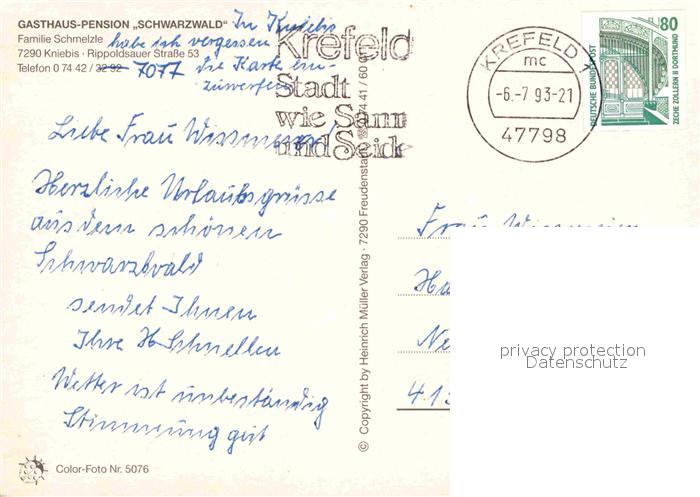 GASTHAUS-PENSION „SCHWARZWALD"
Familie Schmelzle
7290 Kniebis · Rippoldsauer Straße 53
Telefon 0 74 42 / 32 92 7077
In Kniebis
habe ich vergessen
die Karte ein
zuwerfen
Krefeld
Stadt
wie Samt
und Seide
KREFELD 1
mc
-6.-7 93-21
47798
80
DEUTSCHE BUNDESPOST
ZECHE ZOLLERN II DORTMUND
Liebe Frau
Herzliche Urlaubsgrüsse
aus dem schönen
Schwarzwald
sendet Ihnen
Ihre H Schnellen
Wetter ist unbeständig
Stimmung gut
© Copyright by Heinrich Müller Verlag · 7290 Freudenstadt 74 41 / 60
Frau
Ha
Ne
413
privacy protection
Datenschutz
Color-Foto Nr. 5076